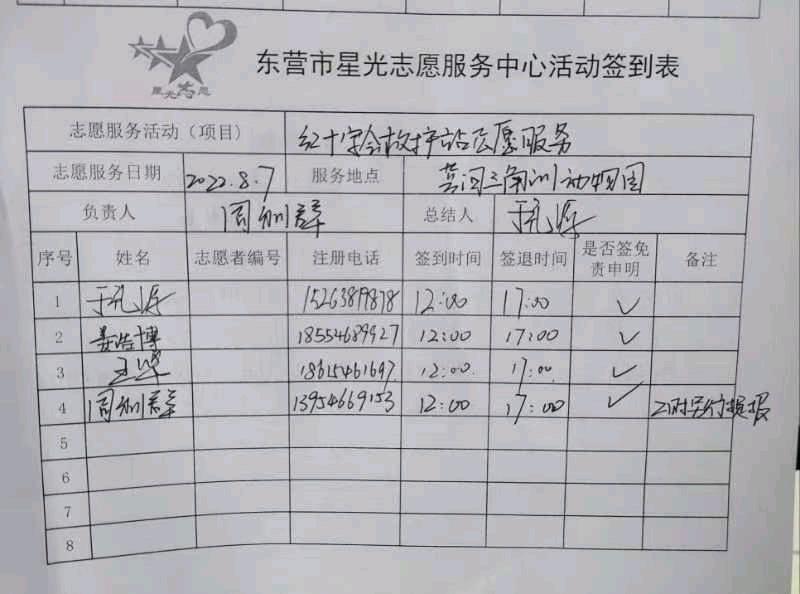 星光志愿
东营市星光志愿服务中心活动签到表
志愿服务活动（项目） 红十字会救护站志愿服务
志愿服务日期 2022.8.7 服务地点 黄河三角洲动物园
负责人 周 总结人 于
序号 姓名 志愿者编号 注册电话 签到时间 签退时间 是否签免责申明 备注
1 于 15263819878 12:00 17:00 ✓
2 姜浩博 18554689927 12:00 17:00 ✓
3 王 18615461697 12:00 17:00 ✓
4 周 13954669153 12:00 17:00 ✓
5
6
7
8